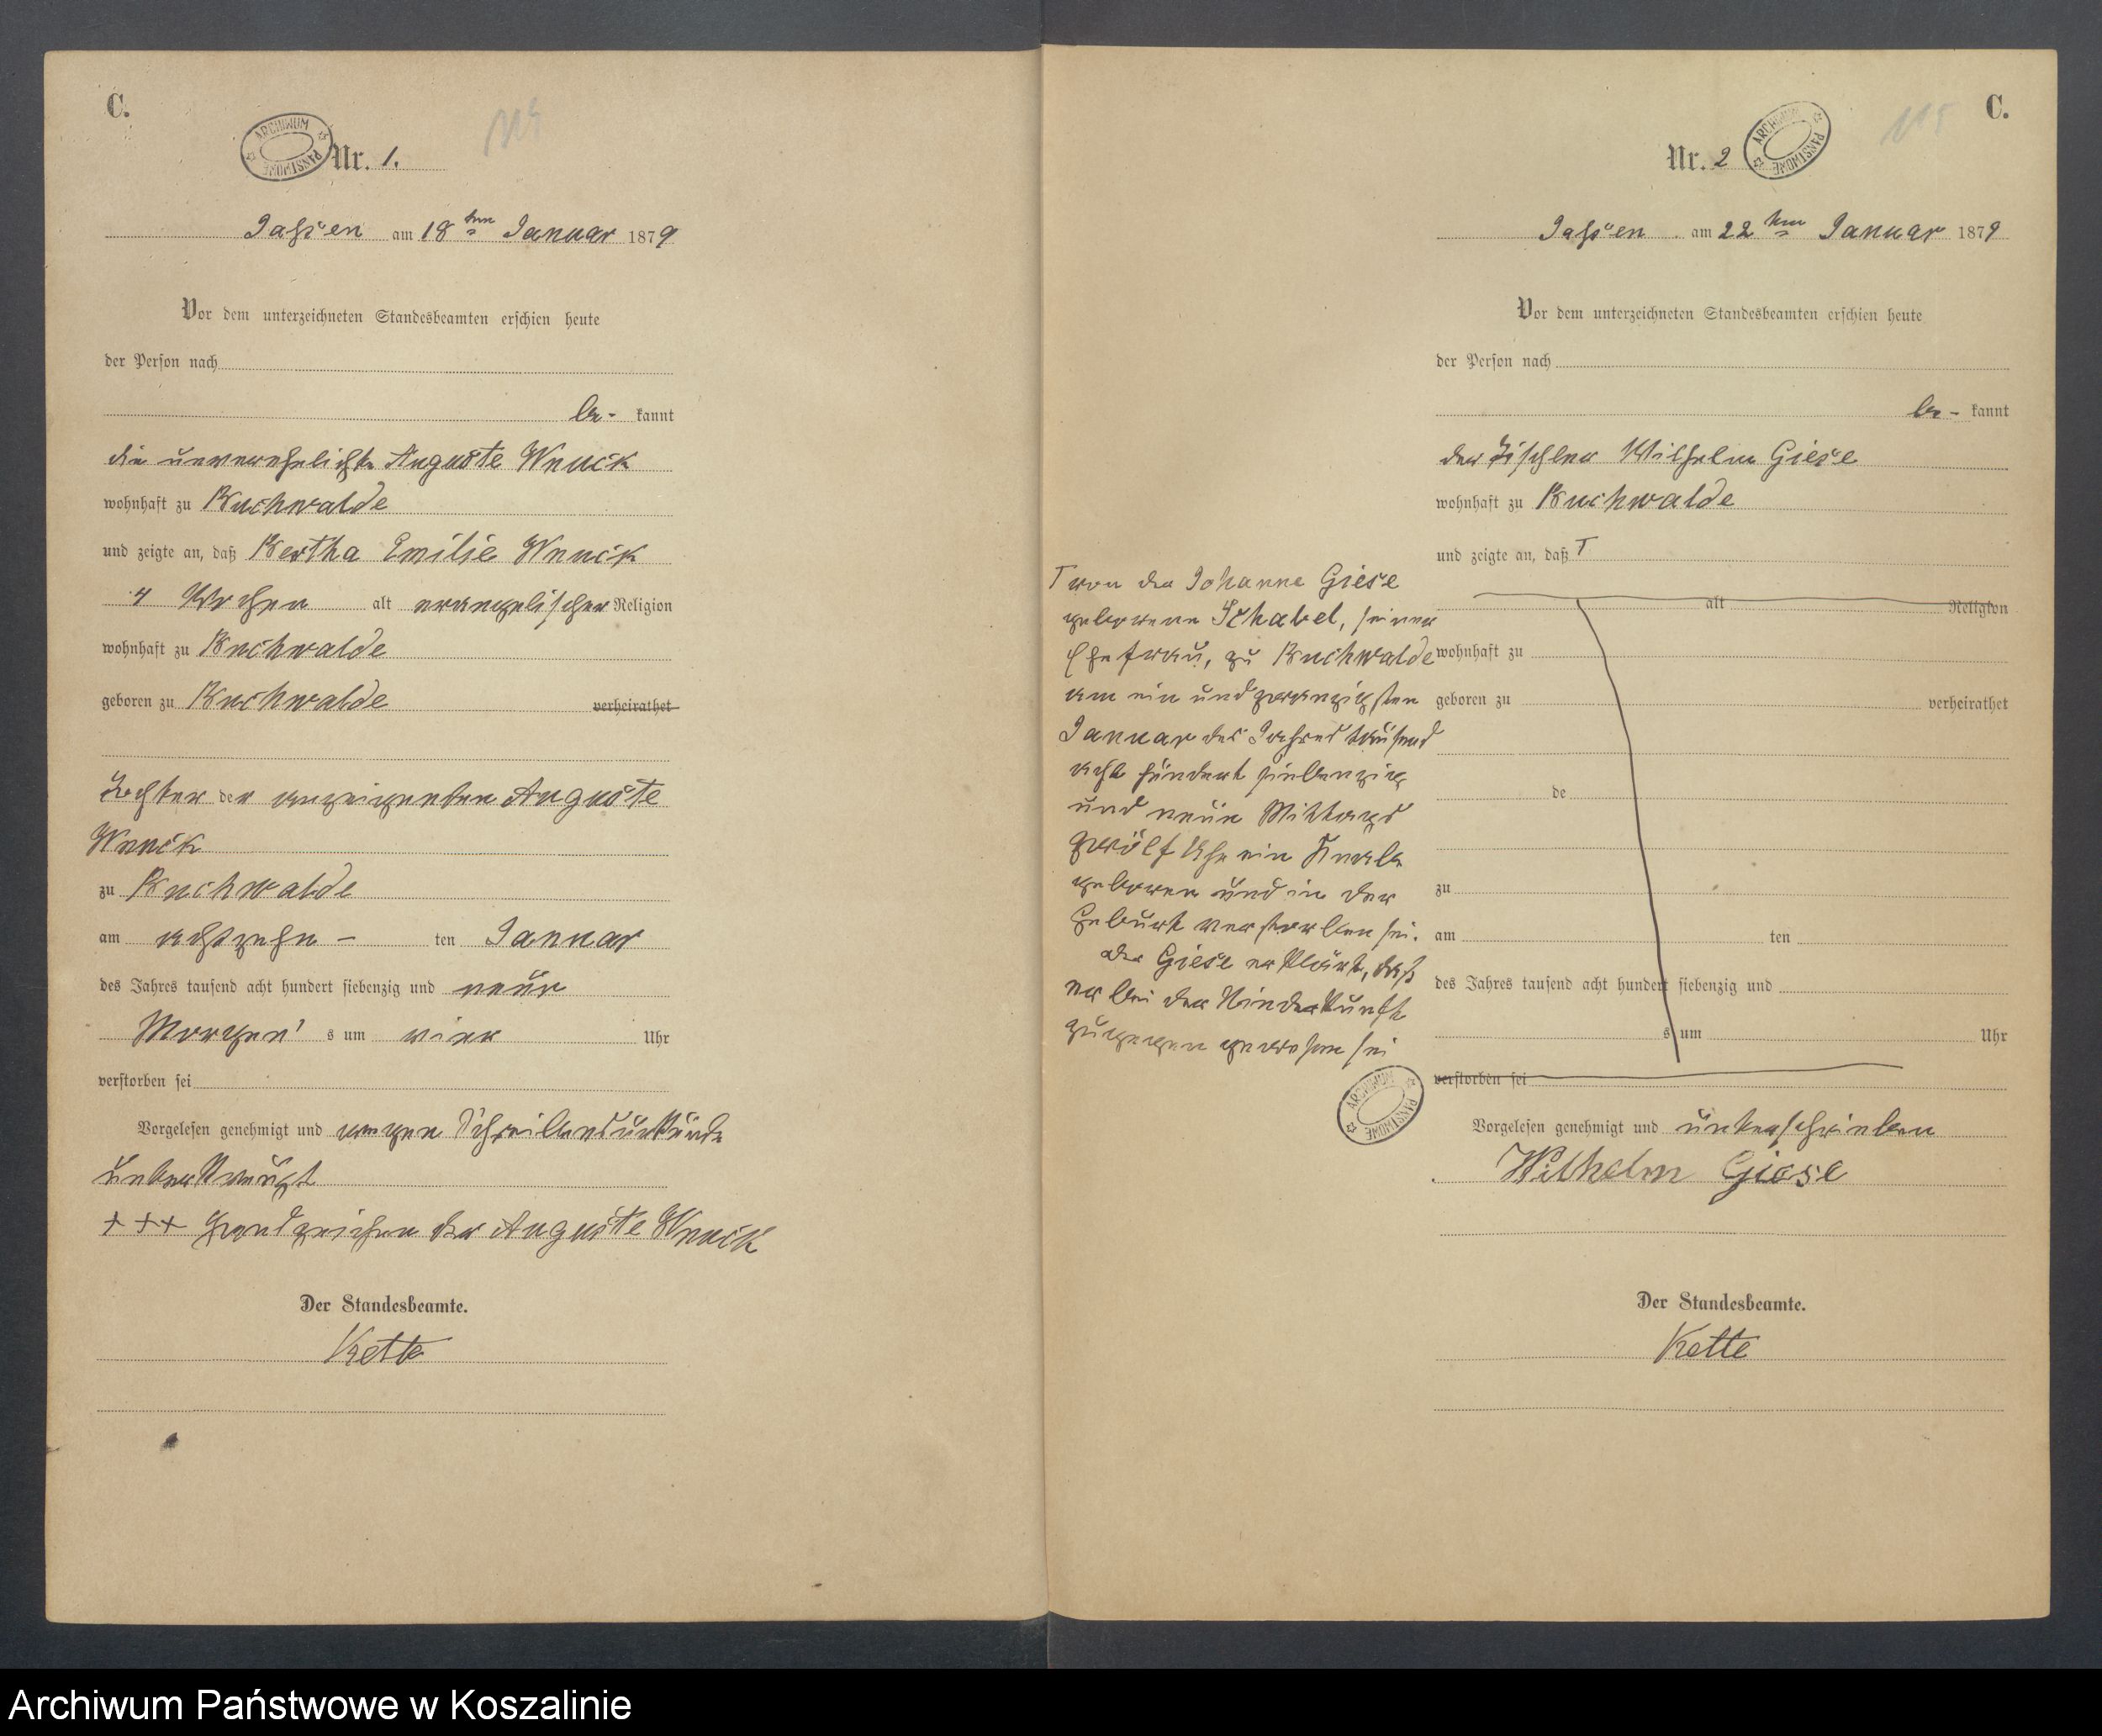 C.
ARCHIWUM PAŃSTWOWE
Nr. 1.
Jassen am 18ten Januar 1879
Vor dem unterzeichneten Standesbeamten erschien heute
der Person nach
be- kannt
die unverehelichte Auguste Wnuck
wohnhaft zu Buchwalde
und zeigte an, daß Bertha Emilie Wnuck
4 Wochen alt evangelischer Religion
wohnhaft zu Buchwalde
geboren zu Buchwalde verheirathet
Tochter der anzeigenden Auguste
Wnuck
zu Buchwalde
am achtzehn - ten Januar
des Jahres tausend acht hundert siebenzig und neun
Morgen's um vier Uhr
verstorben sei
Vorgelesen genehmigt und wegen Schreibensunkunde
unterkreuzt
+++ Handzeichen der Auguste Wnuck
Der Standesbeamte.
Kette
C.
Nr. 2
ARCHIWUM PAŃSTWOWE
Jassen am 22ten Januar 1879
Vor dem unterzeichneten Standesbeamten erschien heute
der Person nach
be- kannt
der Tischler Wilhelm Giese
wohnhaft zu Buchwalde
und zeigte an, daß T
T von der Johanne Giese
geborene Schabel, seiner
Ehefrau, zu Buchwalde
am ein und zwanzigsten
Januar des Jahres tausend
acht hundert siebenzig
und neun Mittags
zwölf Uhr ein Knabe
geboren und in der
Geburt verstorben sei.
Der Giese erklärt, daß
er bei der Niederkunft
zugegen gewesen sei
ARCHIWUM PAŃSTWOWE
alt Religion
wohnhaft zu
geboren zu verheirathet
de
zu
am ten
des Jahres tausend acht hundert siebenzig und
s um Uhr
verstorben sei
Vorgelesen genehmigt und unterschrieben
Wilhelm Giese
Der Standesbeamte.
Kette
Archiwum Państwowe w Koszalinie